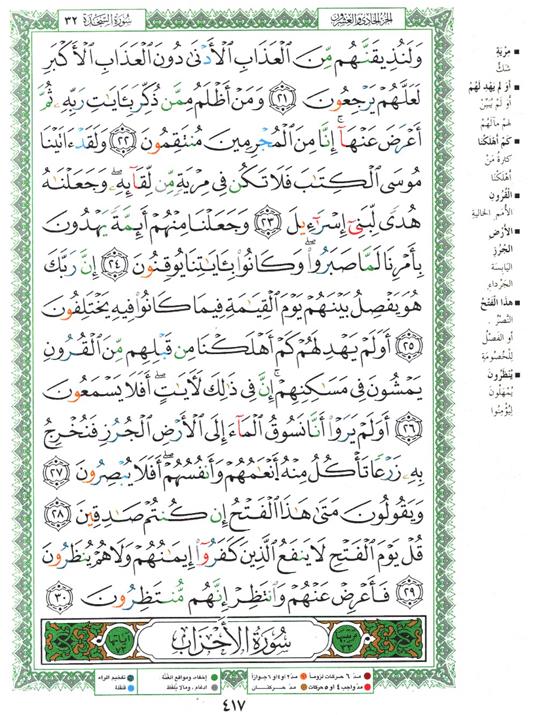 الجزء الحادي والعشرون
سورة السجدة ٣٢
وَلَنُذِيقَنَّهُم مِّنَ ٱلْعَذَابِ ٱلْأَدْنَىٰ دُونَ ٱلْعَذَابِ ٱلْأَكْبَرِ
لَعَلَّهُمْ يَرْجِعُونَ ٢١ وَمَنْ أَظْلَمُ مِمَّن ذُكِّرَ بِـَٔايَٰتِ رَبِّهِۦ ثُمَّ
أَعْرَضَ عَنْهَآ ۚ إِنَّا مِنَ ٱلْمُجْرِمِينَ مُنتَقِمُونَ ٢٢ وَلَقَدْ ءَاتَيْنَا
مُوسَى ٱلْكِتَٰبَ فَلَا تَكُن فِى مِرْيَةٍ مِّن لِّقَآئِهِۦ ۖ وَجَعَلْنَٰهُ
هُدًى لِّبَنِىٓ إِسْرَٰٓءِيلَ ٢٣ وَجَعَلْنَا مِنْهُمْ أَئِمَّةً يَهْدُونَ
بِأَمْرِنَا لَمَّا صَبَرُوا۟ ۖ وَكَانُوا۟ بِـَٔايَٰتِنَا يُوقِنُونَ ٢٤ إِنَّ رَبَّكَ
هُوَ يَفْصِلُ بَيْنَهُمْ يَوْمَ ٱلْقِيَٰمَةِ فِيمَا كَانُوا۟ فِيهِ يَخْتَلِفُونَ
٢٥ أَوَلَمْ يَهْدِ لَهُمْ كَمْ أَهْلَكْنَا مِن قَبْلِهِم مِّنَ ٱلْقُرُونِ
يَمْشُونَ فِى مَسَٰكِنِهِمْ ۚ إِنَّ فِى ذَٰلِكَ لَءَايَٰتٍ ۖ أَفَلَا يَسْمَعُونَ
٢٦ أَوَلَمْ يَرَوْا۟ أَنَّا نَسُوقُ ٱلْمَآءَ إِلَى ٱلْأَرْضِ ٱلْجُرُزِ فَنُخْرِجُ
بِهِۦ زَرْعًا تَأْكُلُ مِنْهُ أَنْعَٰمُهُمْ وَأَنفُسُهُمْ ۖ أَفَلَا يُبْصِرُونَ ٢٧
وَيَقُولُونَ مَتَىٰ هَٰذَا ٱلْفَتْحُ إِن كُنتُمْ صَٰدِقِينَ ٢٨
قُلْ يَوْمَ ٱلْفَتْحِ لَا يَنفَعُ ٱلَّذِينَ كَفَرُوٓا۟ إِيمَٰنُهُمْ وَلَا هُمْ يُنظَرُونَ
٢٩ فَأَعْرِضْ عَنْهُمْ وَٱنتَظِرْ إِنَّهُم مُّنتَظِرُونَ ٣٠
ترتيبها ٣٣
سُورَةُ الأَحْزَابِ
آياتها ٧٣
■ مِرْيَةٍ
شَكٍّ
■ أَوَ لَمْ يَهْدِ لَهُمْ
أَوَ لَمْ يُبَيِّنْ
لَهُمْ مَآلَهُمْ
■ كَمْ أَهْلَكْنَا
كَثْرَةَ مَنْ
أَهْلَكْنَا
■ الْقُرُونِ
الأُمَمِ الخالِيَةِ
■ الأَرْضِ
الجُرُزِ
اليَابِسَةِ
الجَرْدَاءِ
■ هذا الفَتْحُ
النَّصْرُ
أو الفَصْلُ
لِلْخُصُومَةِ
■ يُنْظَرُونَ
يُمْهَلُونَ
لِيُؤْمِنُوا
مدّ ٦ حركات لزوماً
مدّ ٢ أو ٤ أو ٦ جوازاً
إخفاء، ومواقع الغُنَّة
تفخيم الراء
مدّ واجب ٤ أو ٥ حركات
مدّ حركتان
إدغام، وما لا يُلفظ
قلقلة
٤١٧